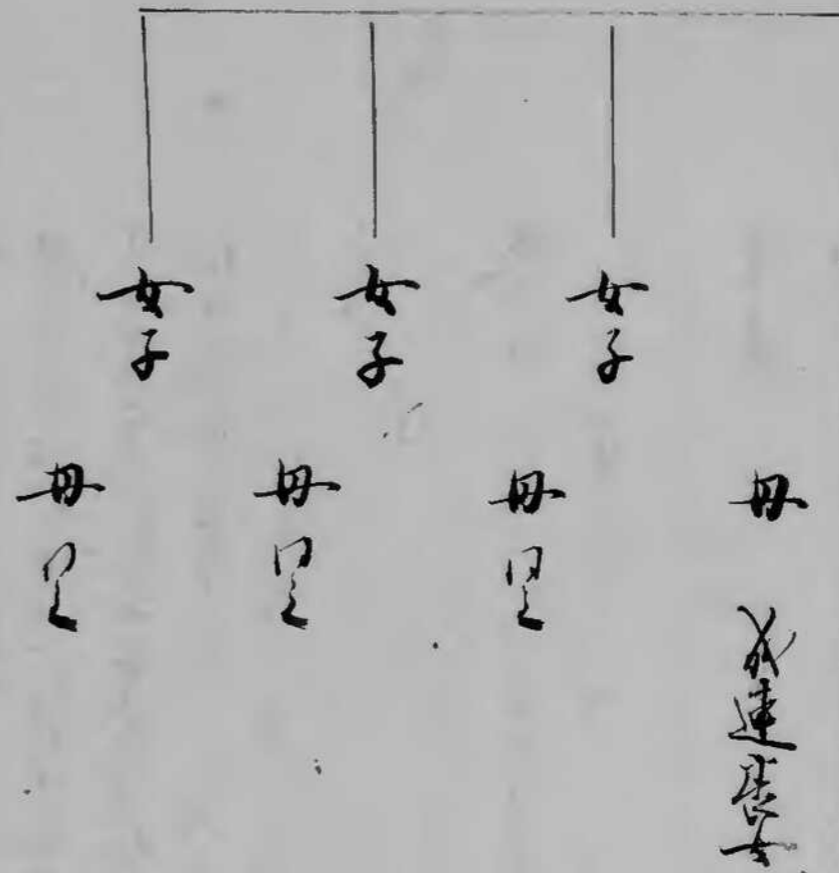 母 成連養女
女子
母 同上
女子
母 同上
女子
母 同上